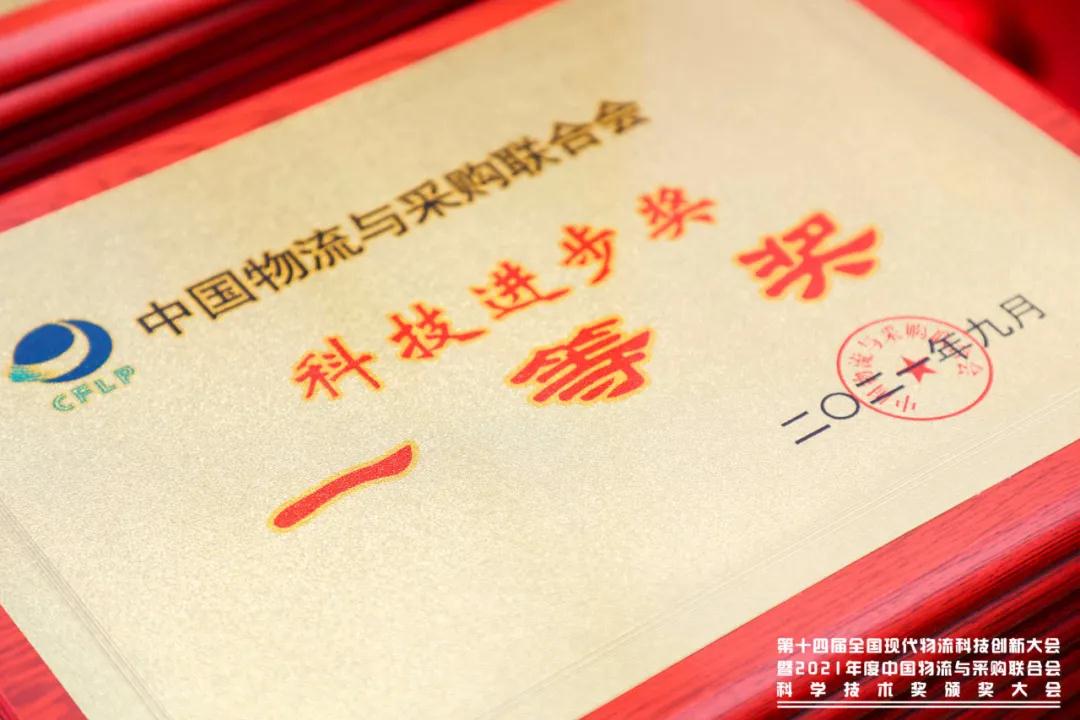 中国物流与采购联合会
CFLP
科技进步奖
一等奖
二〇二一年九月
中国物流与采购联合会
第十四届全国现代物流科技创新大会
暨2021年度中国物流与采购联合会
科学技术奖颁奖大会